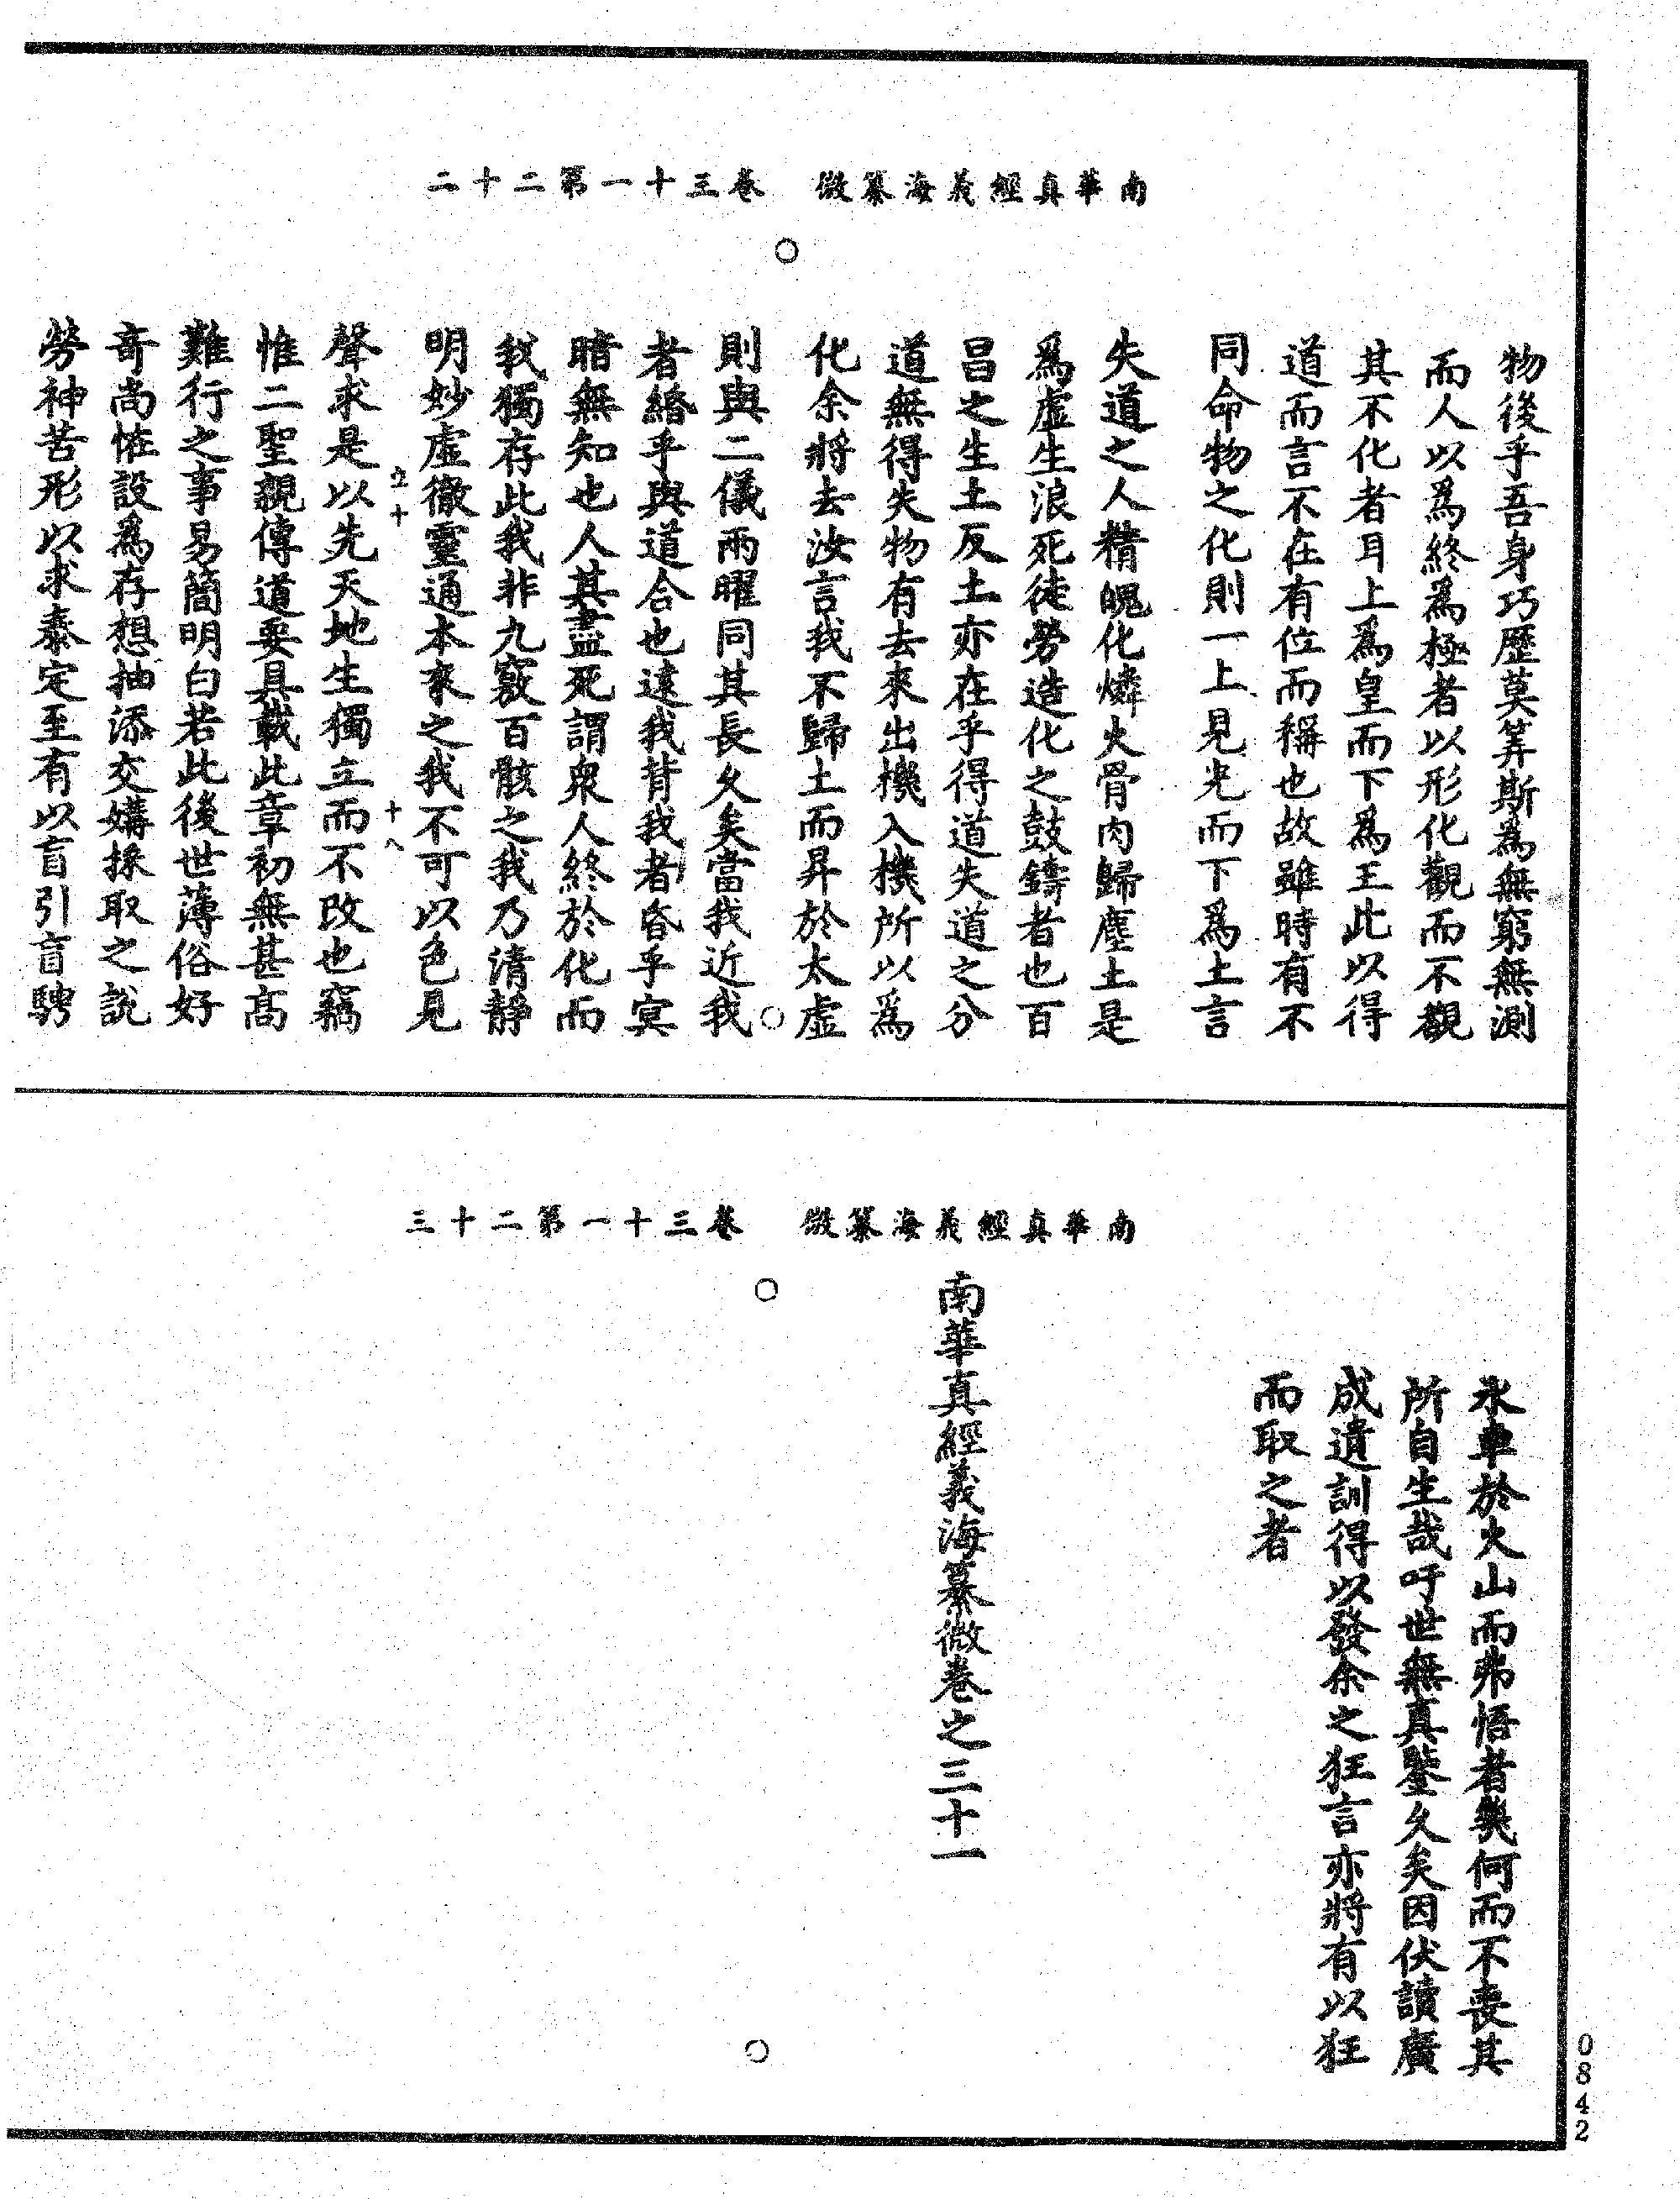 南華真經義海纂微　卷三十一第二十二
物後乎吾身巧歷莫筭斯為無窮無測
而人以為終為極者以形化觀而不觀
其不化者耳上爲皇而下爲王此以得
道而言不在有位而稱也故雖時有不
同命物之化則一上見光而下爲土言
失道之人精魄化燐火骨肉歸塵土是
爲虛生浪死徒勞造化之鼓鑄者也百
昌之生土反土亦在乎得道失道之分
道無得失物有去來出機入機所以爲
化余將去汝言我不歸土而昇於太虛
則與二儀兩曜同其長久矣當我近我
者緡乎與道合也遠我背我者昏乎冥
暗無知也人其盡死謂衆人終於化而
我獨存此我非九竅百骸之我乃清靜
明妙虛徹靈通本來之我不可以色見
立十　十八
聲求是以先天地生獨立而不改也竊
惟二聖親傳道要具載此章初無甚高
難行之事易簡明白若此後世薄俗好
奇尚怪設爲存想抽添交媾採取之說
勞神苦形以求泰定至有以盲引盲騁
南華真經義海纂微　卷三十一第二十三
氷車於火山而弗悟者幾何而不喪其
所自生哉吁世無真鑒久矣因伏讀廣
成遺訓得以發余之狂言亦將有以狂
而取之者
南華真經義海纂微卷之三十一
0842